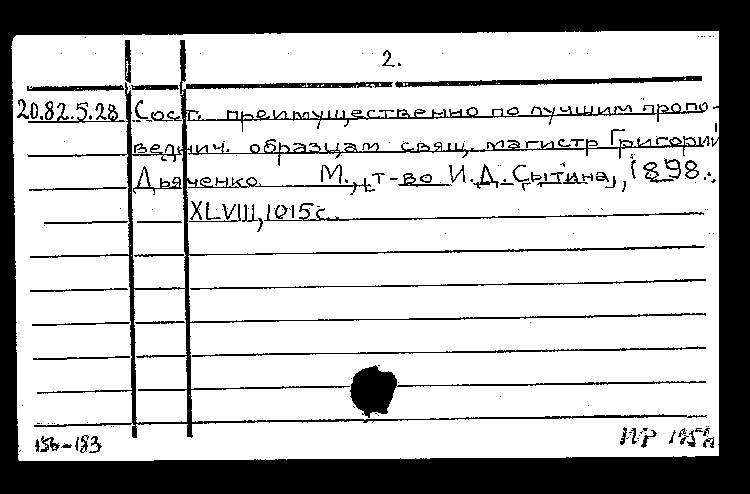 2.
20.82.5.28 Сост. преимущественно по лучшим пропо-
веднич. образцам свящ. магистр Григорий
Дьяченко. М., т-во И.Д. Сытина, 1898.
XLVIII, 1015 с.
156-183